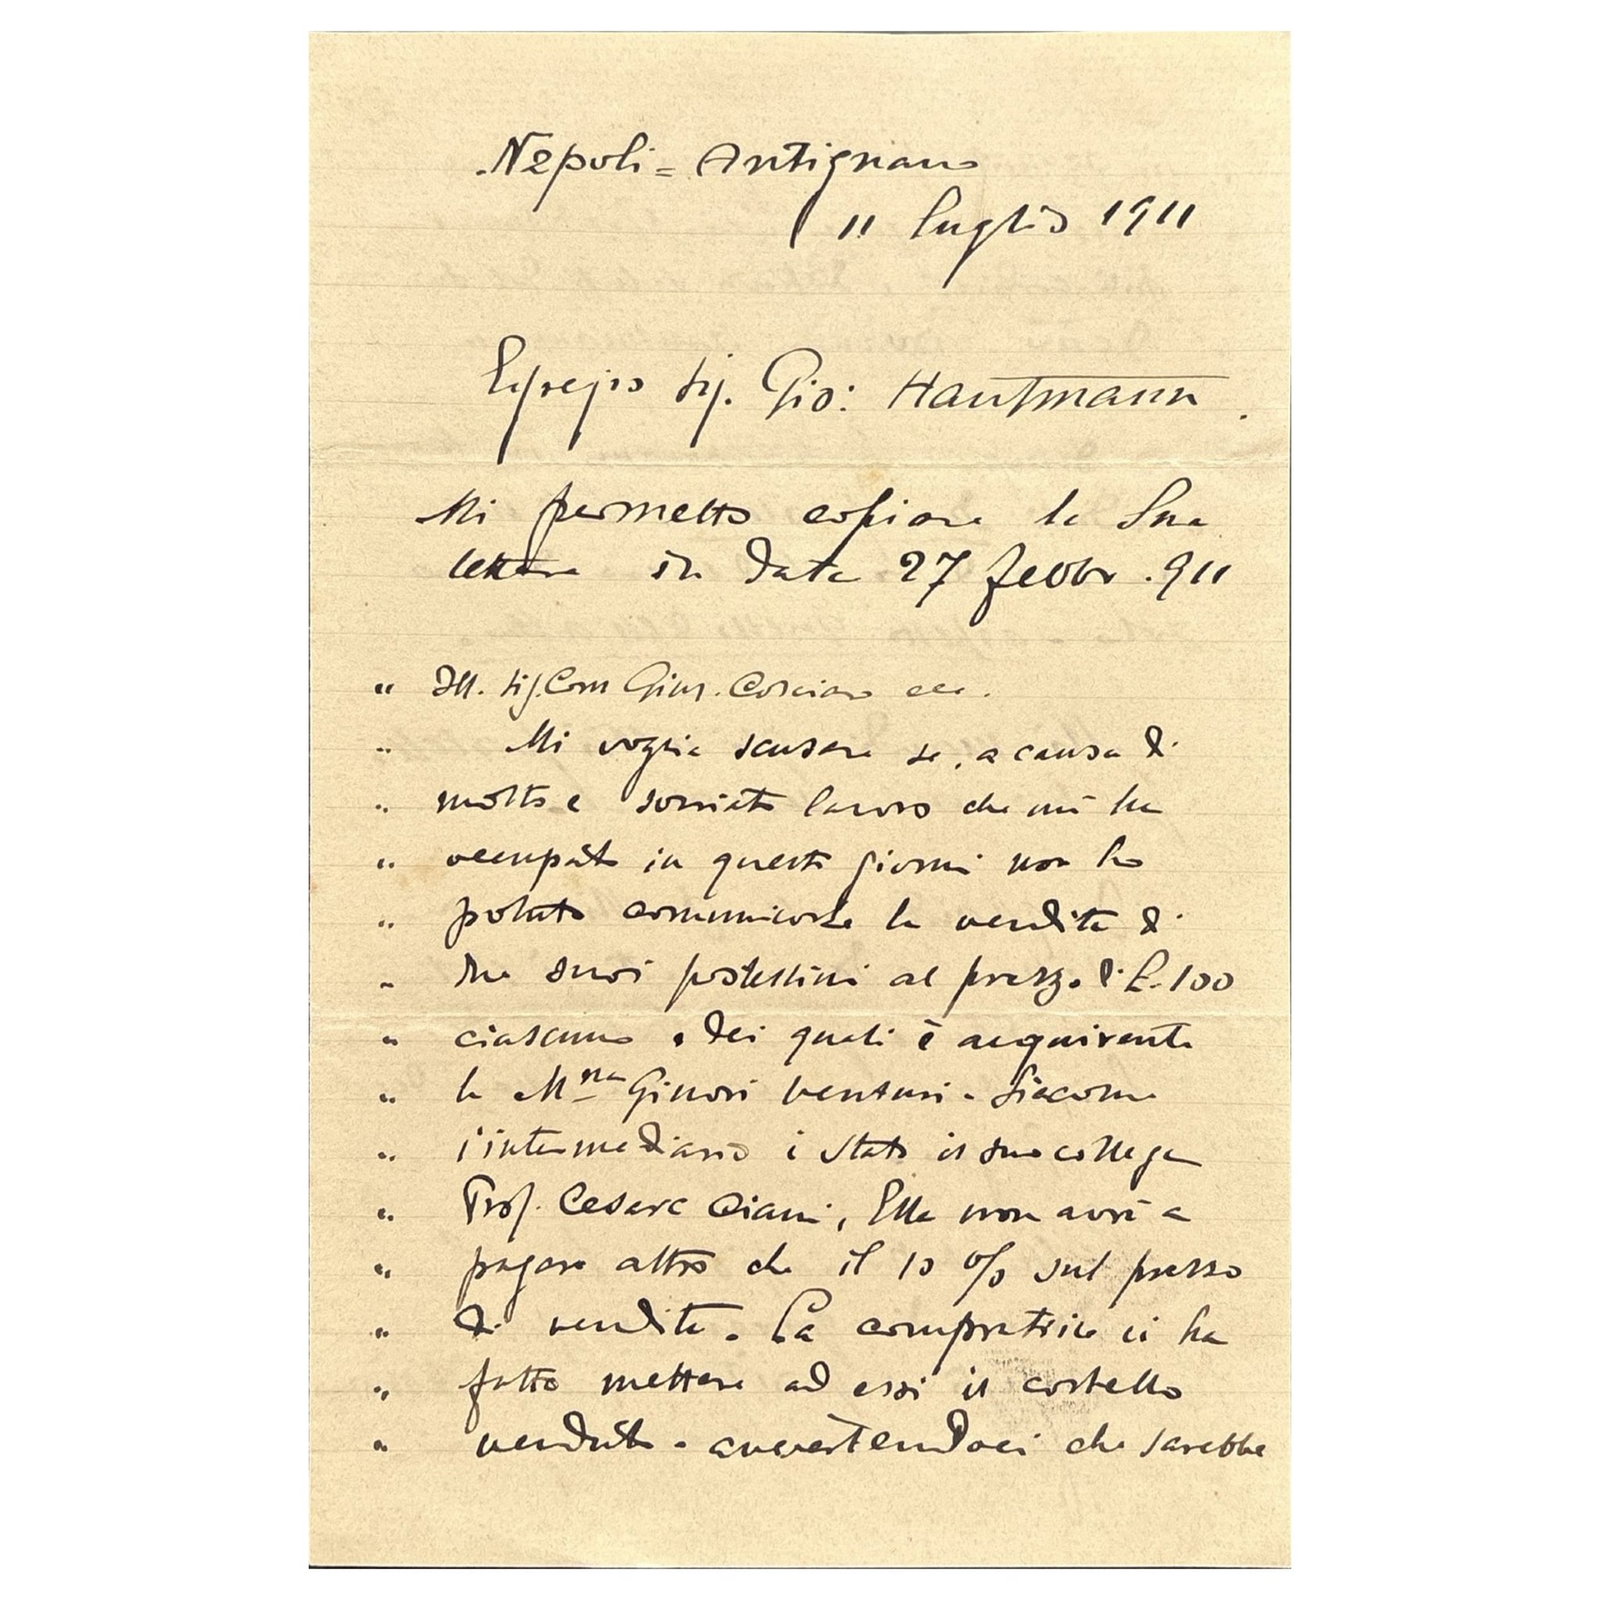 Napoli = Antignano
11 luglio 1911
Egregio Sig. Gio: Hautmann.
Mi permetto copiare la Sua
lettera in data 27 febbr. 911
" Ill. Sig. Com Gius. Cosciaro ecc.
" Mi voglia scusare se, a causa di
" molto e lavoro che mi ha
" occupato in questi giorni non ho
" potuto comunicarle la vendita di
" due suoi pastellini al prezzo di £. 100
" ciascuno, dei quali è acquirente
" la M.na Ginori Venturi. Siccome
" l'intermediario è stato il suo collega
" Prof. Cesare Ciani, Ella non avrà a
" pagare altro che il 10 % sul prezzo
" di vendita. La compratrice ci ha
" fatto mettere ad essi il cartello
" venduto. avvertendoci che sarebbe